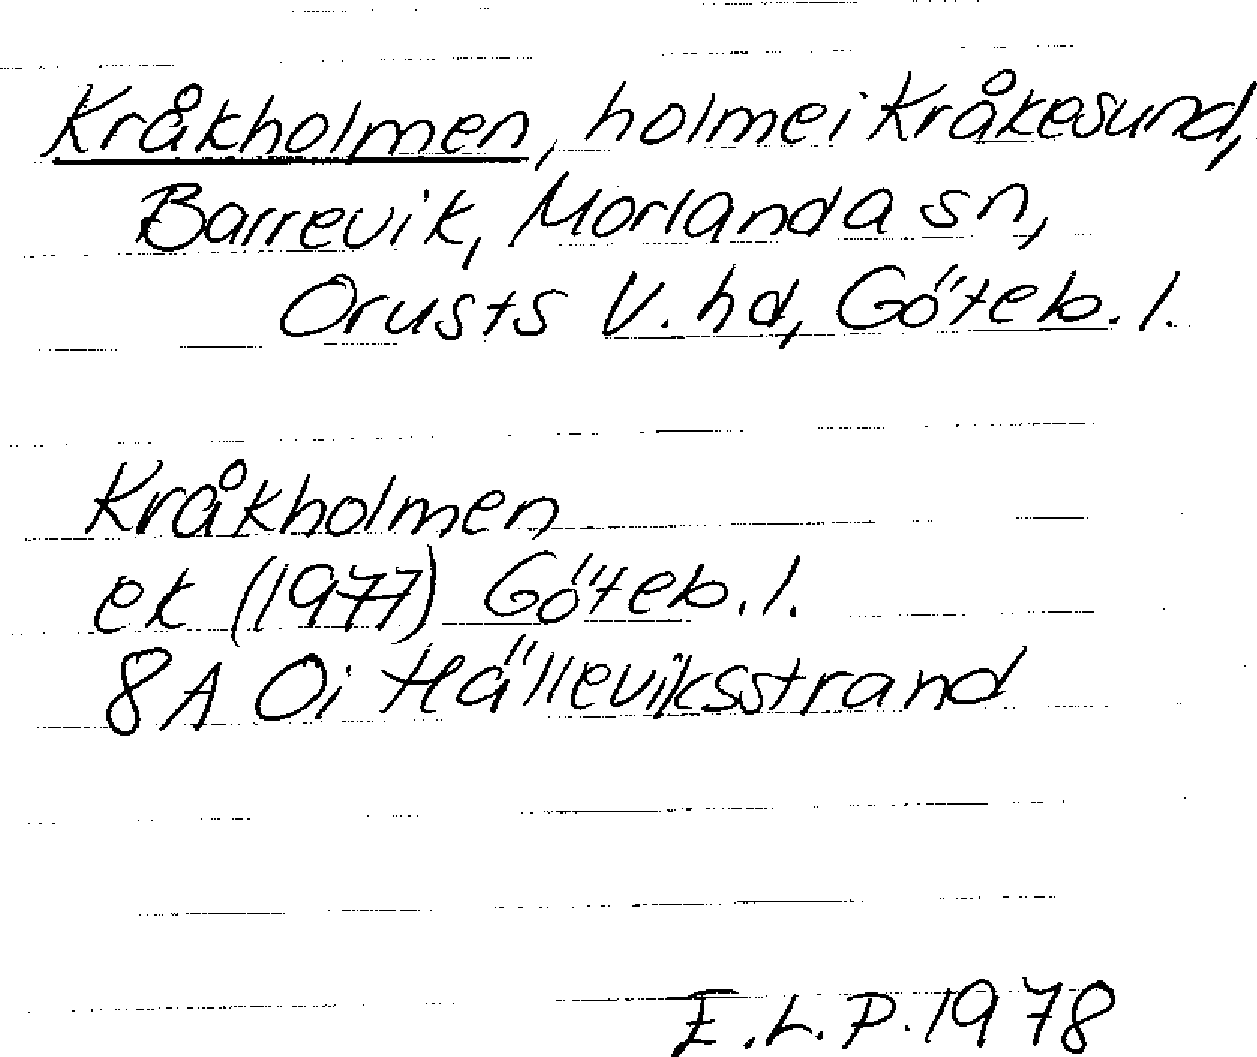 Kråkholmen, holme i Kråkesund,
Barrevik, Morlanda sn,
Orusts V. hd, Göteb. l.
Kråkholmen
ek (1977) Göteb. l.
8A 0i Hälleviksstrand
E.L.P. 1978